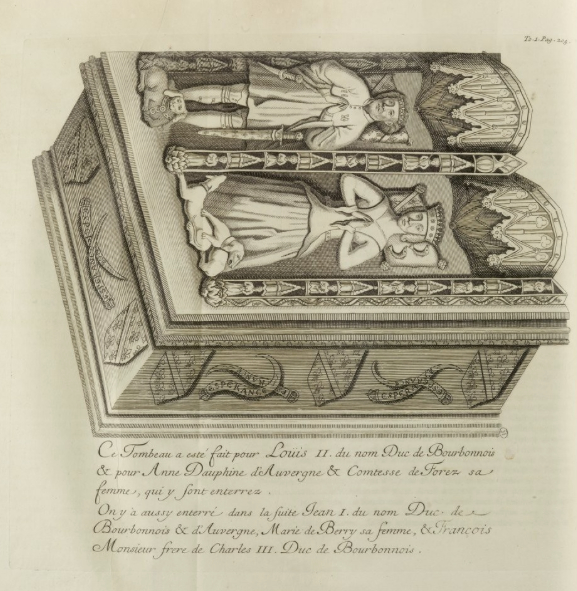 To. 2. Pag. 203
ESPERANCE
ESPERANCE
ESPERANCE
Ce Tombeau a esté fait pour Louis II. du nom Duc de Bourbonnois
& pour Anne Dauphine d'Auvergne & Comtesse de Forez sa
femme, qui y sont enterrez.
On y a aussy enterré dans la suite Jean I. du nom Duc de
Bourbonnois & d'Auvergne, Marie de Berry sa femme, & François
Monsieur frere de Charles III. Duc de Bourbonnois.